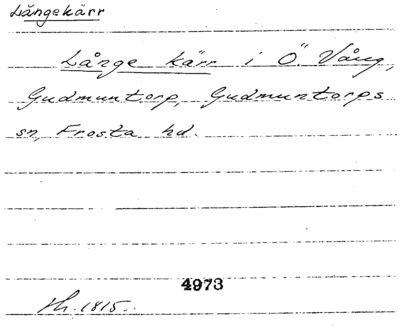 Långekärr
Långe kärr i Ö. Vång,
Gudmuntorp, Gudmuntorps
sn, Frosta hd.
4973
1815.